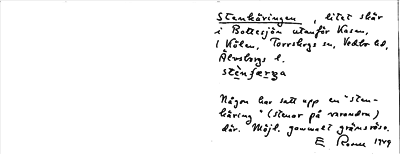 Stenkäringen, litet skär
i Bottesjön utanför Kasen,
i Kölen, Torrskogs sn, Vedbo hd,
Älvsborgs l.
Någon har satt upp en "sten-
käring" (stenar på varandra)
där. Möjl. gammalt gränsröse.
E 1949